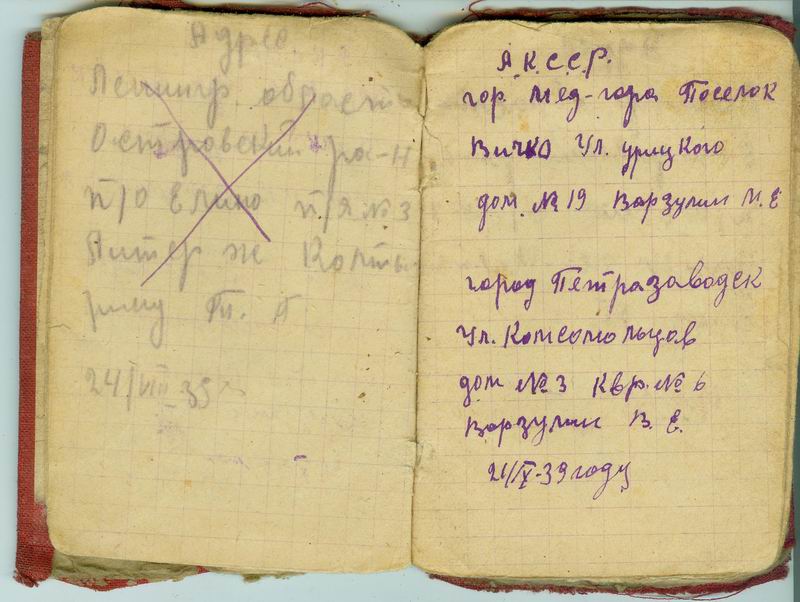 Адрес
Ленингр область
Островский ра-н
п/о Елино п/я № 3
Литер ж
24/VIII 39
А.К.С.С.Р.
гор. Мед-гора Поселок
Вичко Ул. урицкого
дом № 19 Варзулин М. Е
город Петразаводск
Ул. Комсомольцов
дом № 3 Квр. № 6
Варзулин В. Е.
21/IX-39 году